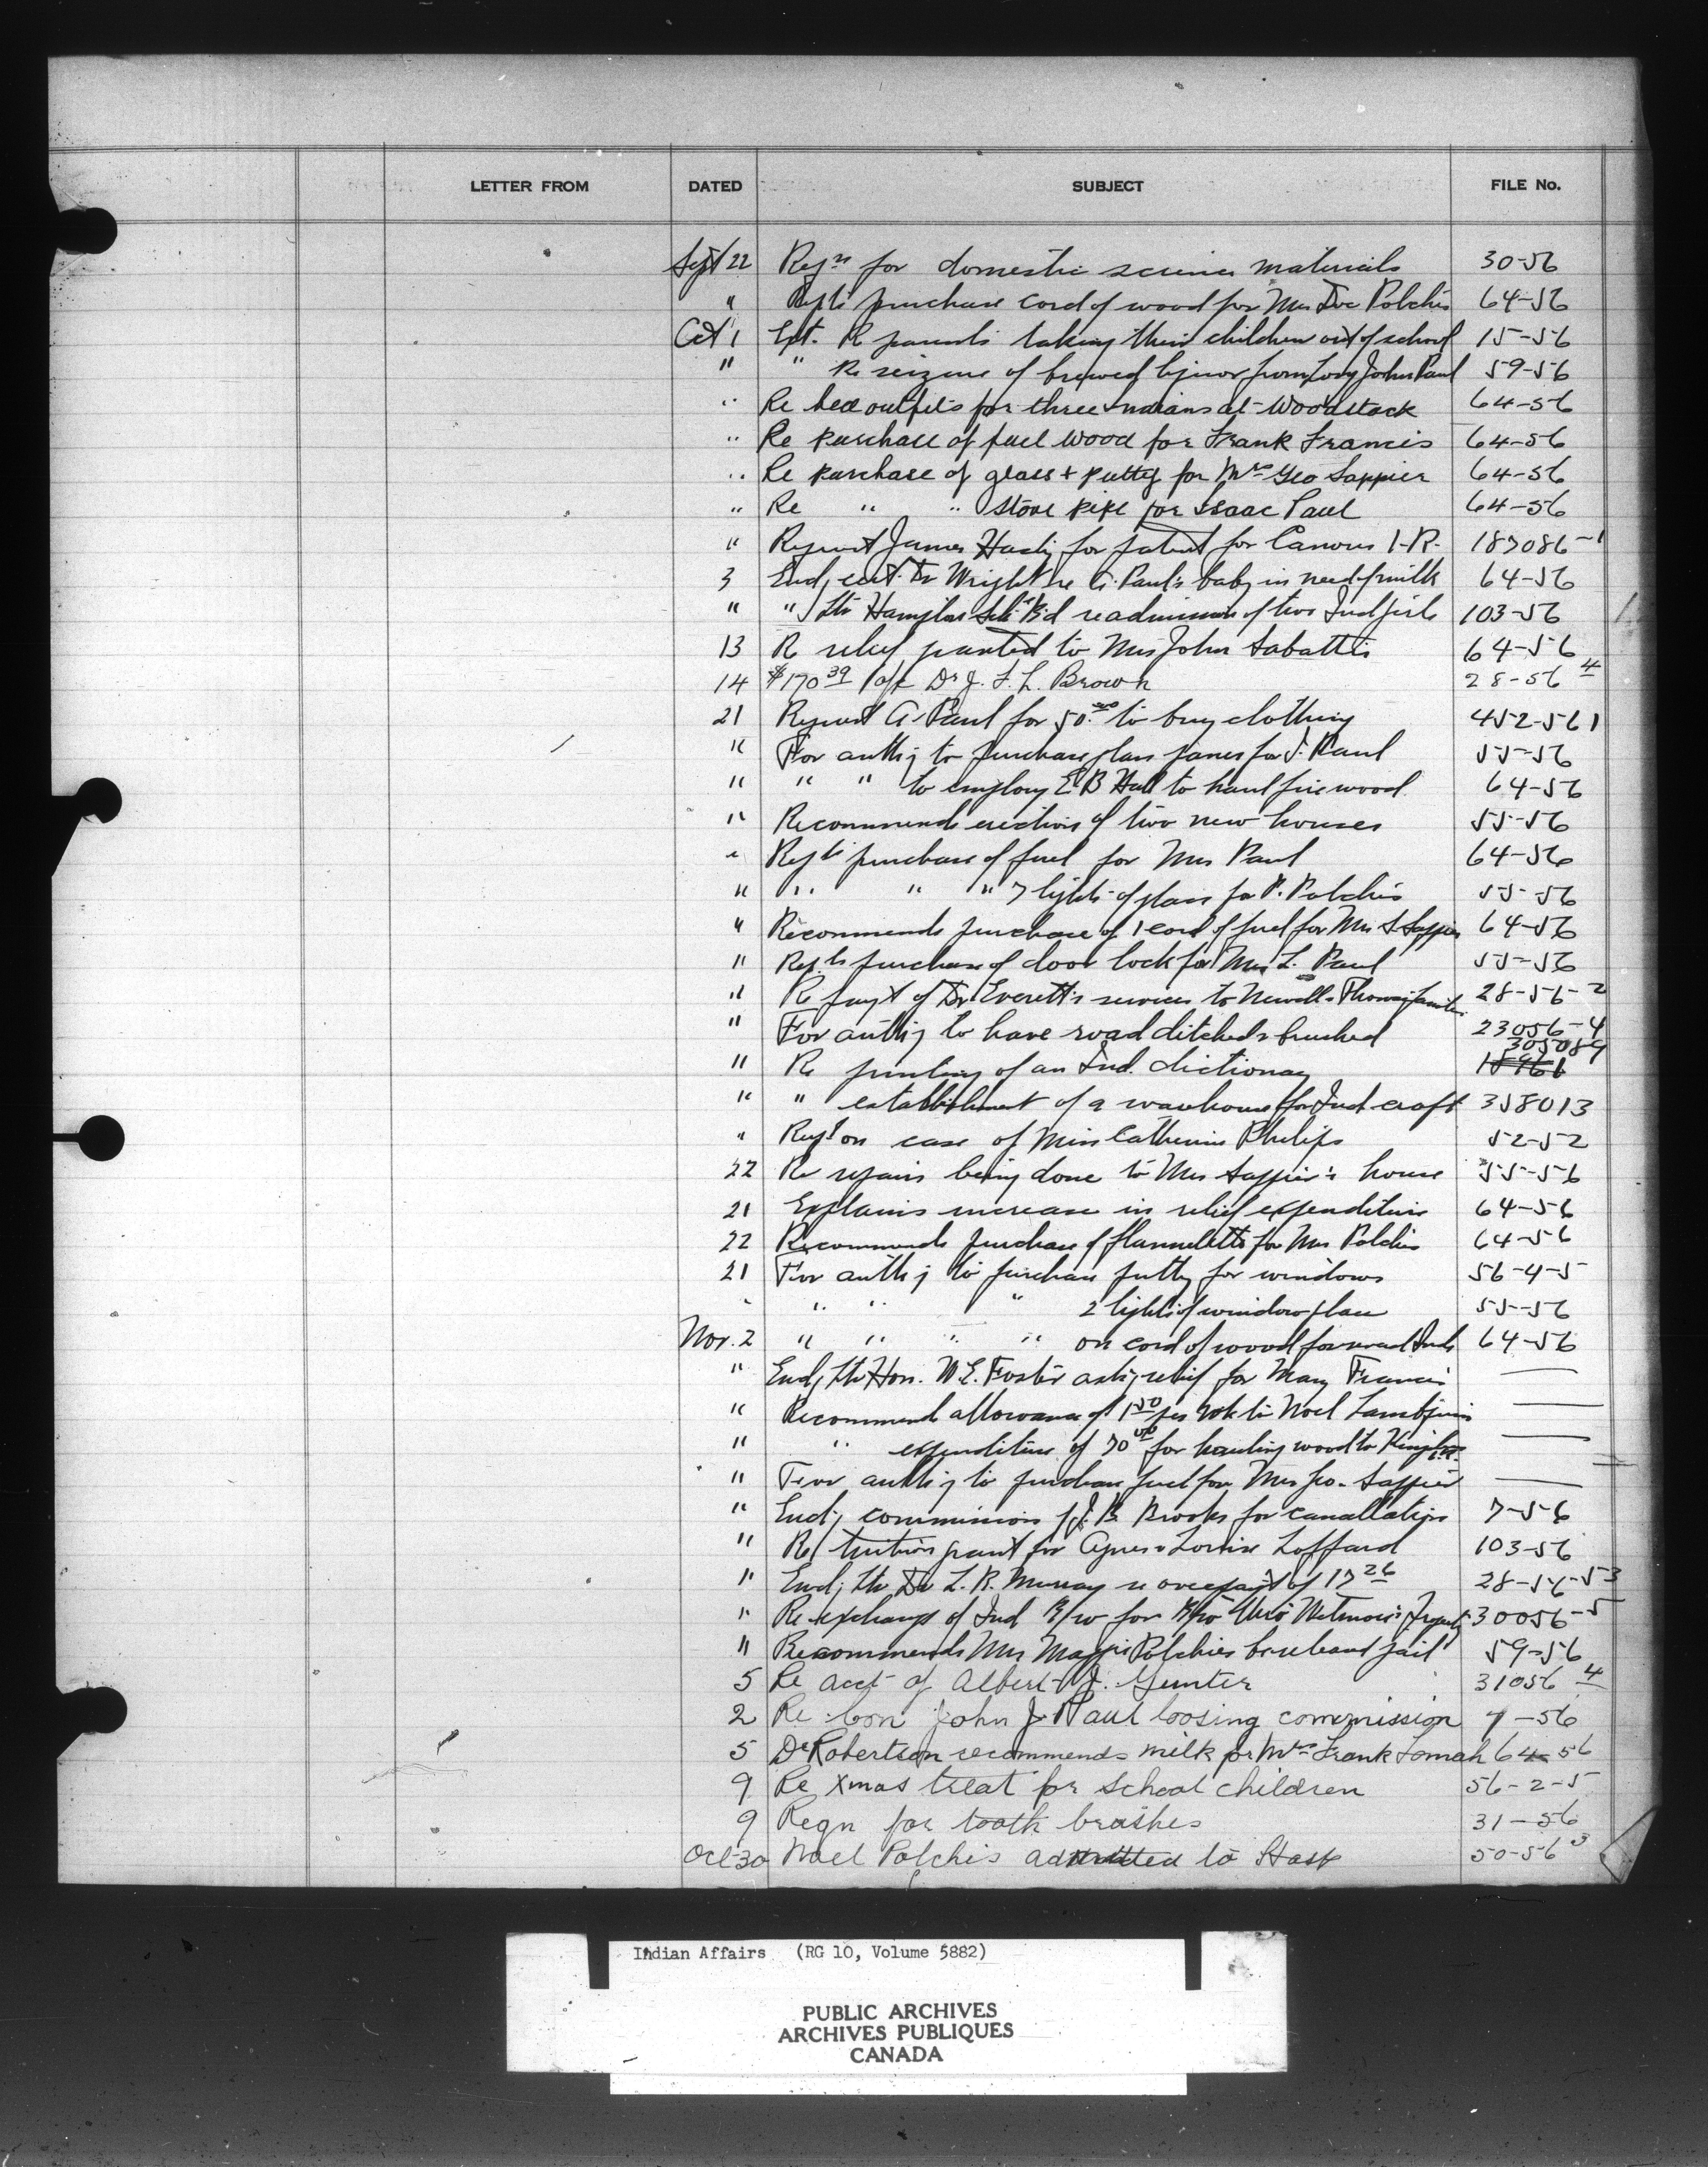 LETTER FROM DATED SUBJECT FILE No.
Sept 22 Reqn for domestic science materials 30-56
" purchase cord of wood for Mrs Doc Polchis 64-56
Oct 1 Rpt. Re parents taking their children out of school 15-56
" " Re seizure of brewed liquor from John Paul 59-56
" Re bed outfits for three Indians at Woodstock 64-56
" Re purchase of fuel wood for Frank Francis 64-56
" Re purchase of glass + putty for Mrs Geo Sappier 64-56
" Re " " stove pipe for Isaac Paul 64-56
" Request James for patent for Canous I.R. 183086-1
3 Encl. cert. Dr Wright re C. Paul's baby in need of milk 64-56
" " ltr Sch. B'd re admission of two Ind girls 103-56
13 Re relief granted to Mrs John Sabattis 64-56
14 $170 39 a/c Dr J. F. L. Brown 28-56 4
21 Request A. Paul for 50.00 to buy clothing 452-561
" For auth'y to purchase glass panes for J. Paul 55-56
" " " to employ E B Hall to haul firewood 64-56
" Recommends erection of two new houses 55-56
" purchase of fuel for Mrs Paul 64-56
" " " " 7 lights of glass for P. Polchis 55-56
" Recommends purchase of 1 cord of fuel for Mrs S Sappier 64-56
" purchase of door lock for Mrs L. Paul 55-56
" Re payt of Dr Everett's services to Newell & Thomas families 28-56-2
" For auth'y to have road ditched & brushed 23056-4
305089
" Re printing of an Ind. dictionary
" " establishment of a warehouse for Ind craft 358013
" Rept on case of Miss Catherine Philips 52-52
22 Re repairs being done to Mrs Sappier's house 55-56
21 Explains increase in relief expenditure 64-56
22 Recommends purchase of flannelette for Mrs Polchis 64-56
21 For auth'y to purchase putty for windows 56-4-5
" " " " 2 lights of window glass 55-56
Nov. 2 " " " " on cord of wood for Inds 64-56
" Encl. ltr Hon. W. E. Foster ask'g relief for Mary Francis —
" Recommend allowance of 1 50 per wk to Noel —
" " expenditure of 70 00 for hauling wood to —
" For auth'y to purchase fuel for Mrs Geo. Sappier —
" Encl'g commission of J. B. Brooks for cancellation 7-56
" Re tuition grant for Agnes & Louise Laffard 103-56
" Encl'g ltr Dr L. R. Murray re overpayt of 17 26 28-56-53
" Re exchange of Ind R/w for R/w thro' Wetmore's Property 30056-5
" Recommends Mrs Maggie Polchies be released jail 59-56
5 Re acct of Albert J. Gunter 31056 4
2 Re Con John J. Paul loosing commission 7-56
5 Dr Robertson recommends milk for Mrs Frank Tomah 64-56
9 Re Xmas treat for School children 56-2-5
9 Reqn for tooth brushes 31-56
Oct-30 Noel Polchis admitted to Hosp 50-56 3
Indian Affairs (RG 10, Volume 5882)
PUBLIC ARCHIVES
ARCHIVES PUBLIQUES
CANADA